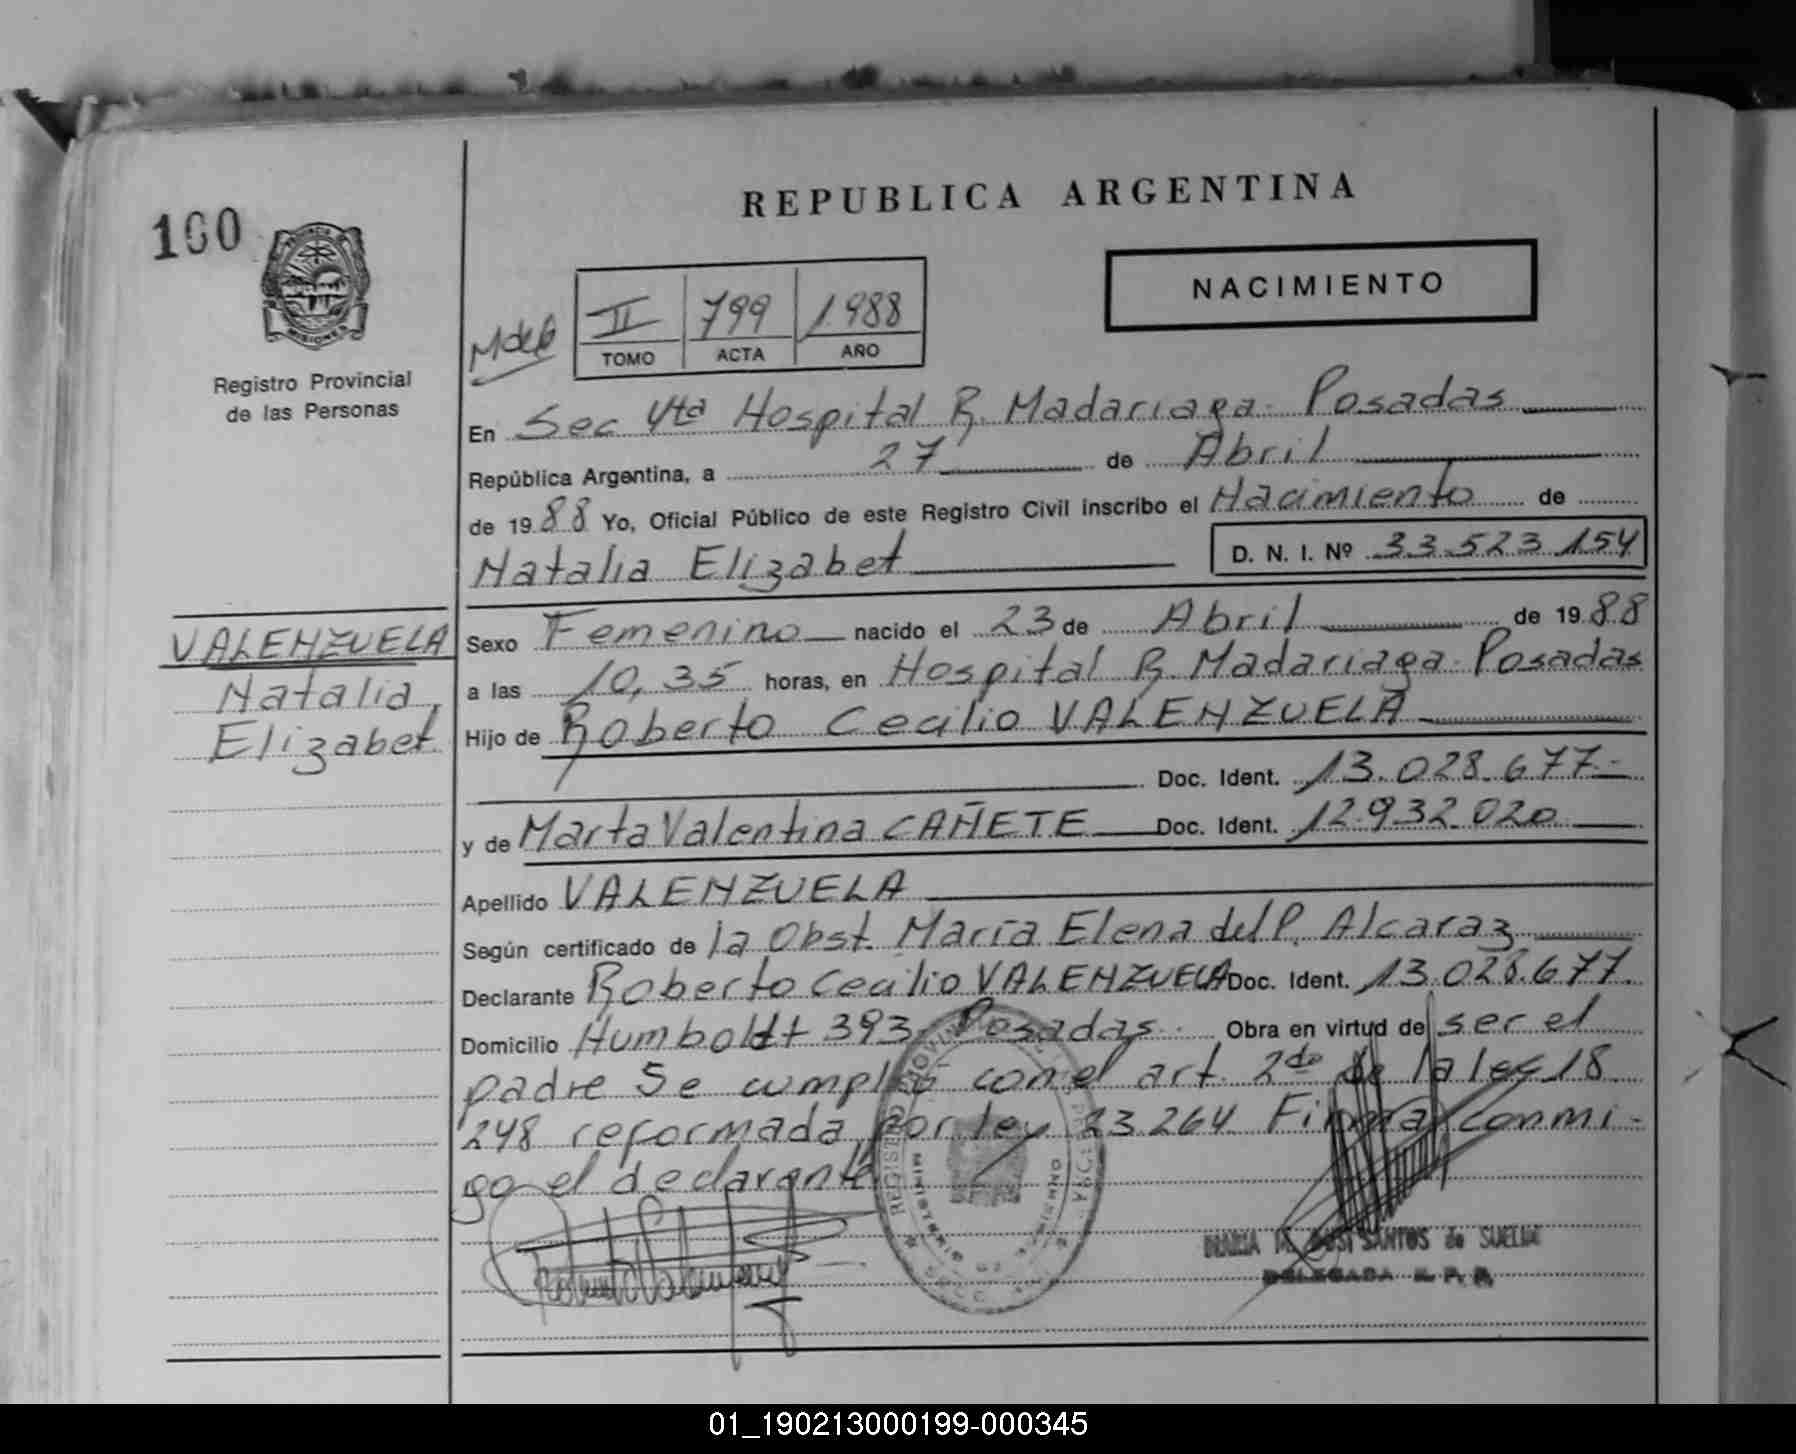 REPUBLICA ARGENTINA
100
MISIONES
Registro Provincial
de las Personas
NACIMIENTO
II 799 1.988
TOMO ACTA AÑO
En Sec 4ta Hospital R. Madariaga. Posadas
República Argentina, a 27 de Abril
de 1988 Yo, Oficial Público de este Registro Civil inscribo el Nacimiento de
Natalia Elizabet D. N. I. Nº 33.523.154
VALENZUELA
Natalia
Elizabet
Sexo Femenino nacido el 23 de Abril de 1988
a las 10,35 horas, en Hospital R. Madariaga. Posadas
Hijo de Roberto Cecilio VALENZUELA
Doc. Ident. 13.028.677.-
y de Marta Valentina CAÑETE Doc. Ident. 12.932.020
Apellido VALENZUELA
Según certificado de la Obst. María Elena del P. Alcaraz
Declarante Roberto Cecilio VALENZUELA Doc. Ident. 13.028.677.
Domicilio Humboldt 393. Posadas. Obra en virtud de ser el
padre Se cumplió con el art. 2do de la ley 18
248 reformada por ley 23.264. Firma conmi-
go el declarante
MINISTERIO DE GOBIERNO
SANTOS de SUELDO
DELEGADA R. P. P.
01_190213000199-000345